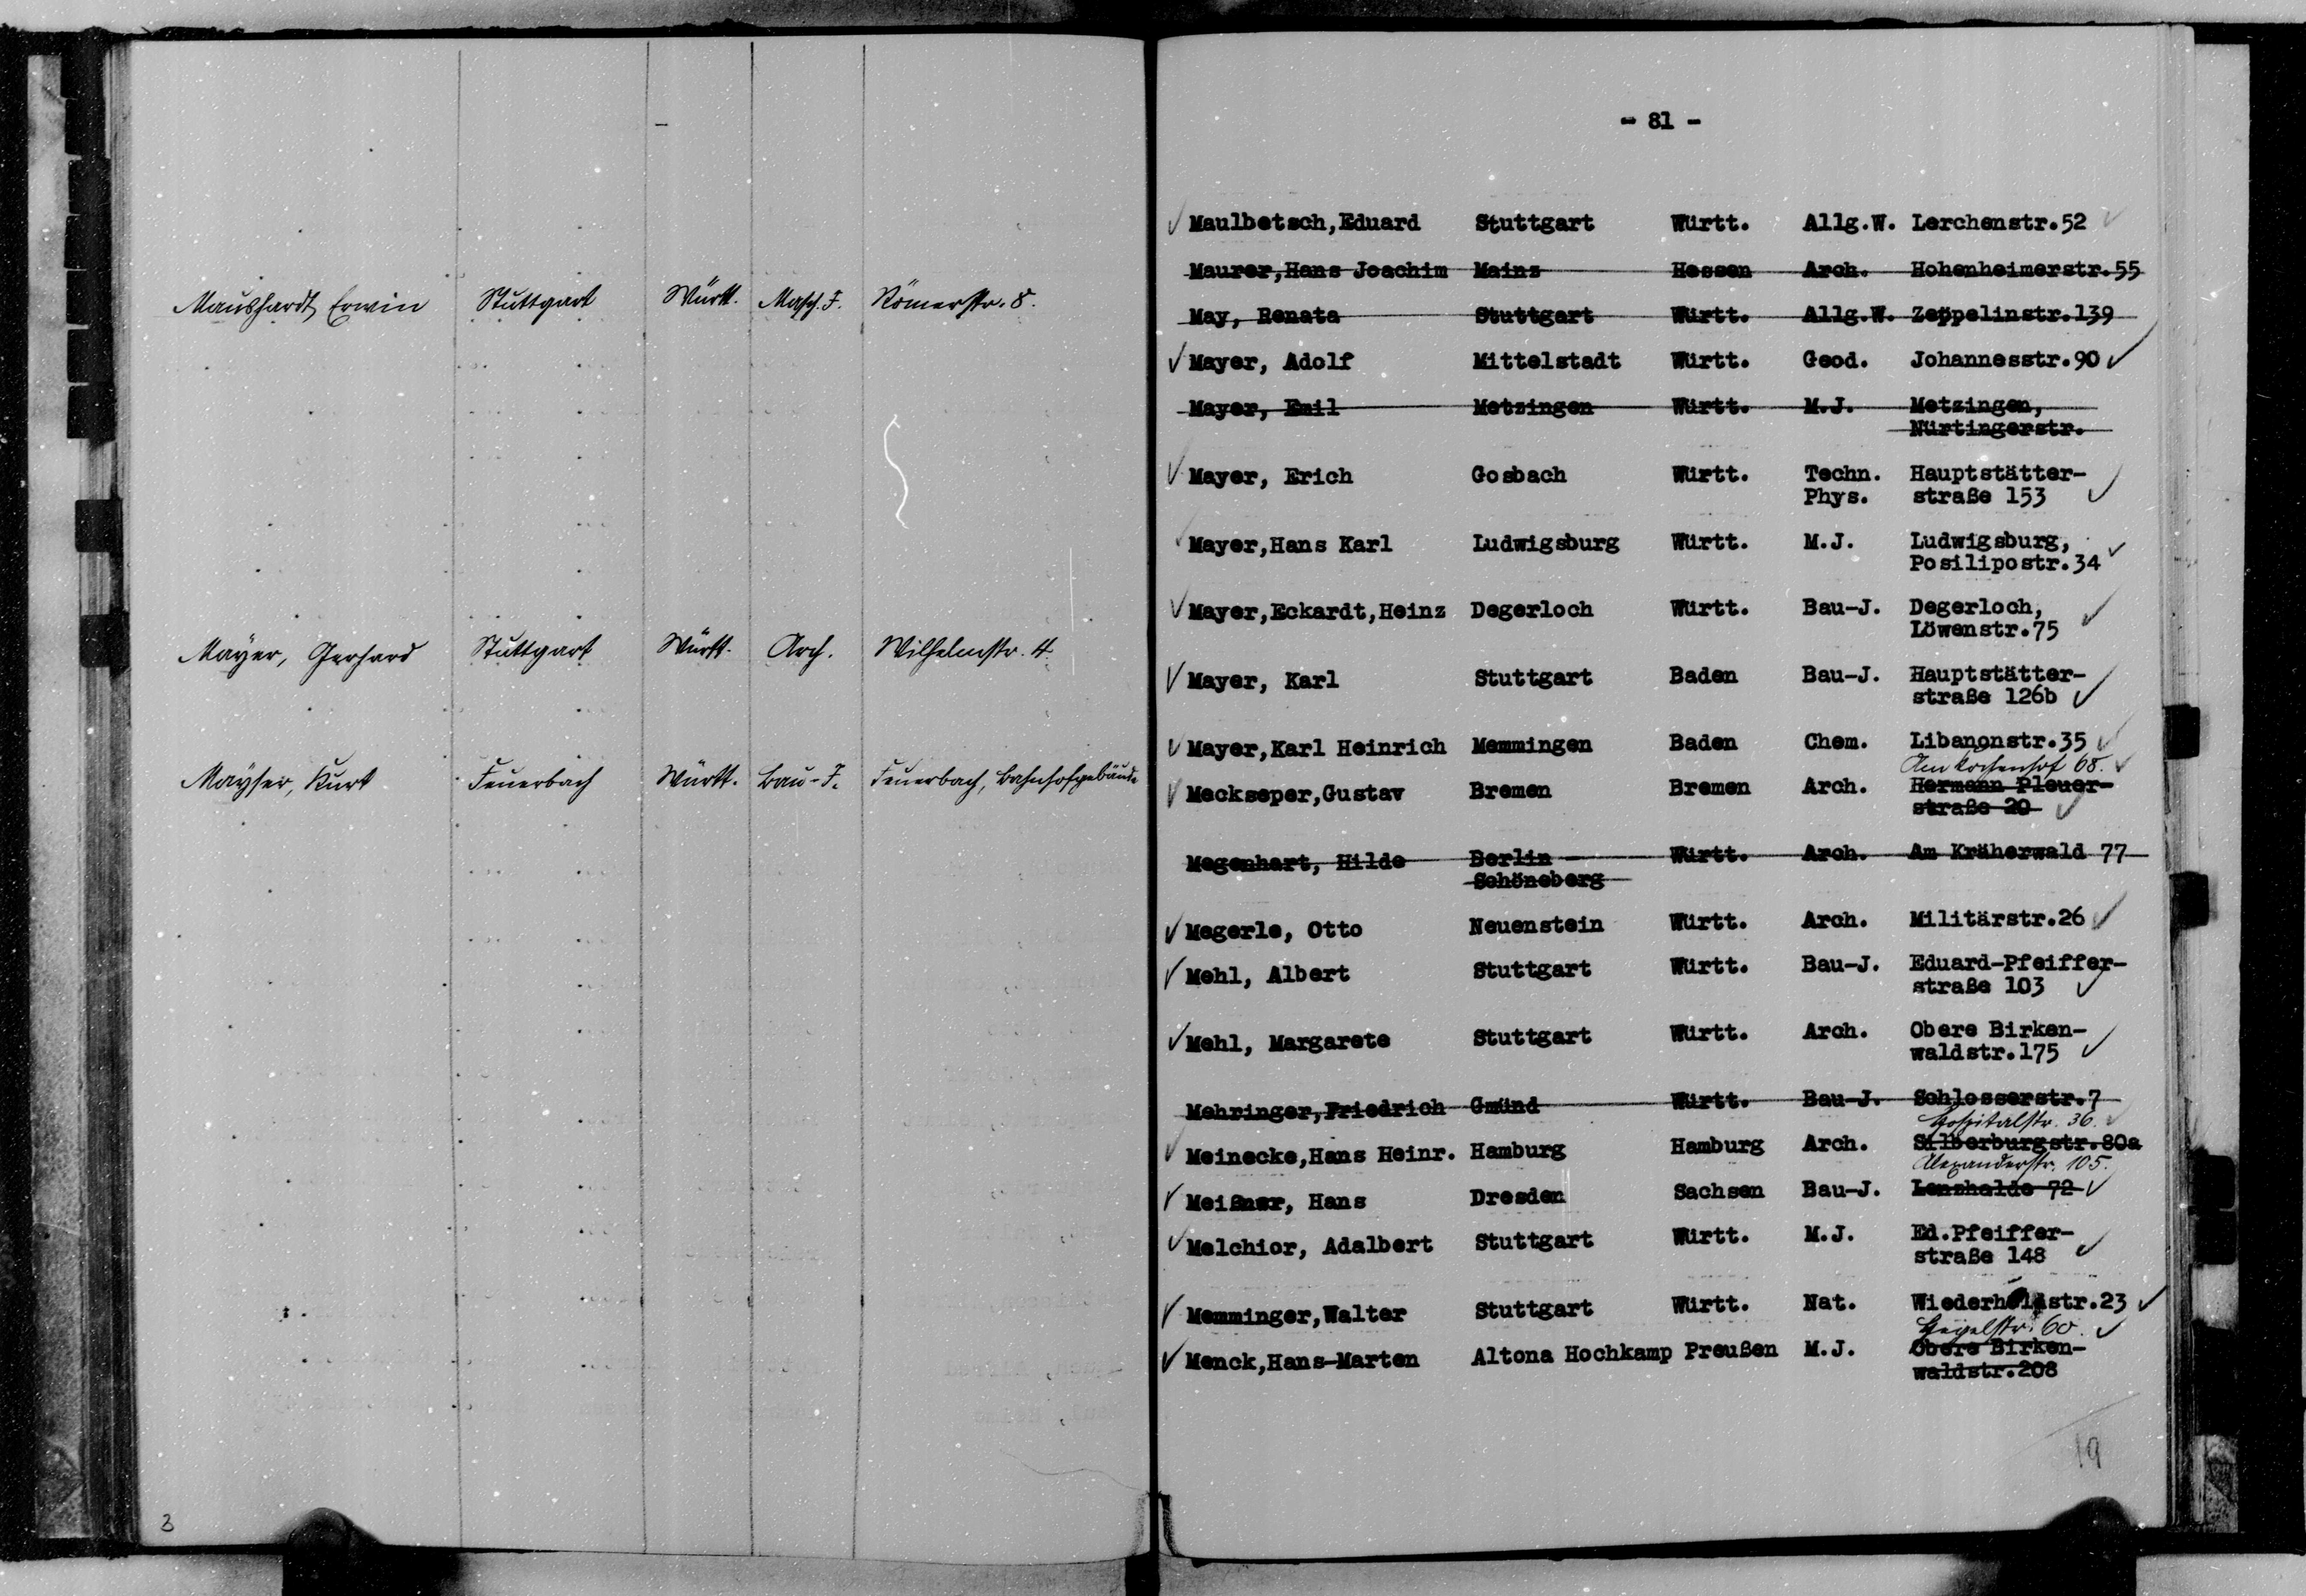 Maushardt, Erwin Stuttgart Württ. Masch.I. Römerstr. 8.
Mayer, Gerhard Stuttgart Württ. Arch. Wilhelmstr. 4
Mayser, Kurt Feuerbach Württ. Bau-I. Feuerbach, Bahnhofgebäude
3
- 81 -
Maulbetsch,Eduard Stuttgart Württ. Allg.W. Lerchenstr.52
Maurer,Hans Joachim Mainz Hessen Arch. Hohenheimerstr.55
May, Renata Stuttgart Württ. Allg.W. Zeppelinstr.139
Mayer, Adolf Mittelstadt Württ. Geod. Johannesstr.90
Mayer, Emil Metzingen Württ. M.J. Metzingen,
Nürtingerstr.
Mayer, Erich Gosbach Württ. Techn. Hauptstätter-
Phys. straße 153
Mayer,Hans Karl Ludwigsburg Württ. M.J. Ludwigsburg,
Posilipostr.34
Mayer,Eckardt,Heinz Degerloch Württ. Bau-J. Degerloch,
Löwenstr.75
Mayer, Karl Stuttgart Baden Bau-J. Hauptstätter-
straße 126b
Mayer,Karl Heinrich Memmingen Baden Chem. Libanonstr.35
Am Kochenhof 68.
Meckseper,Gustav Bremen Bremen Arch. Hermann Pleuer-
straße 20
Megenhart, Hilde Berlin Württ. Arch. Am Kräherwald 77
Schöneberg
Megerle, Otto Neuenstein Württ. Arch. Militärstr.26
Mehl, Albert Stuttgart Württ. Bau-J. Eduard-Pfeiffer-
straße 103
Mehl, Margarete Stuttgart Württ. Arch. Obere Birken-
waldstr.175
Mehringer,Friedrich Gmünd Württ. Bau-J. Schlosserstr.7
Hospitalstr. 36.
Meinecke,Hans Heinr. Hamburg Hamburg Arch. Silberburgstr.80a
Alexanderstr. 105.
Meißner, Hans Dresden Sachsen Bau-J. Lenzhalde 72
Melchior, Adalbert Stuttgart Württ. M.J. Ed.Pfeiffer-
straße 148
Memminger,Walter Stuttgart Württ. Nat. Wiederholdstr.23
Hegelstr. 60.
Menck,Hans-Marten Altona Hochkamp Preußen M.J. Obere Birken-
waldstr.208
19